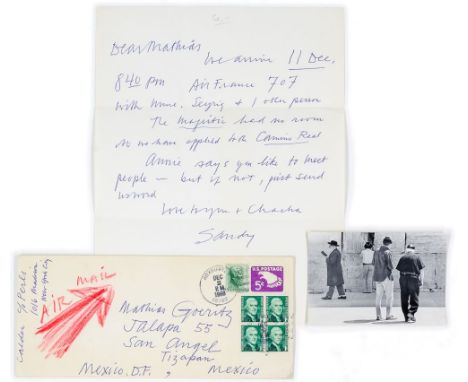 Dear Mathias
We arrive 11 Dec.
8 40 pm Air France 707
with Mme. Seyrig & 1 other person
The Majestic had no room
so we have applied to the Camino Real
Annie says you like to meet
people — but if not, just send
us word
Love to you + Chacha
Sandy
Calder c/o Perls
1016 Madison
New York City
AIR MAIL
DEC
PM
U.S. POSTAGE
5¢
Mathias Goeritz
Jalapa 55
San Angel
Tizapan
Mexico, D.F., Mexico